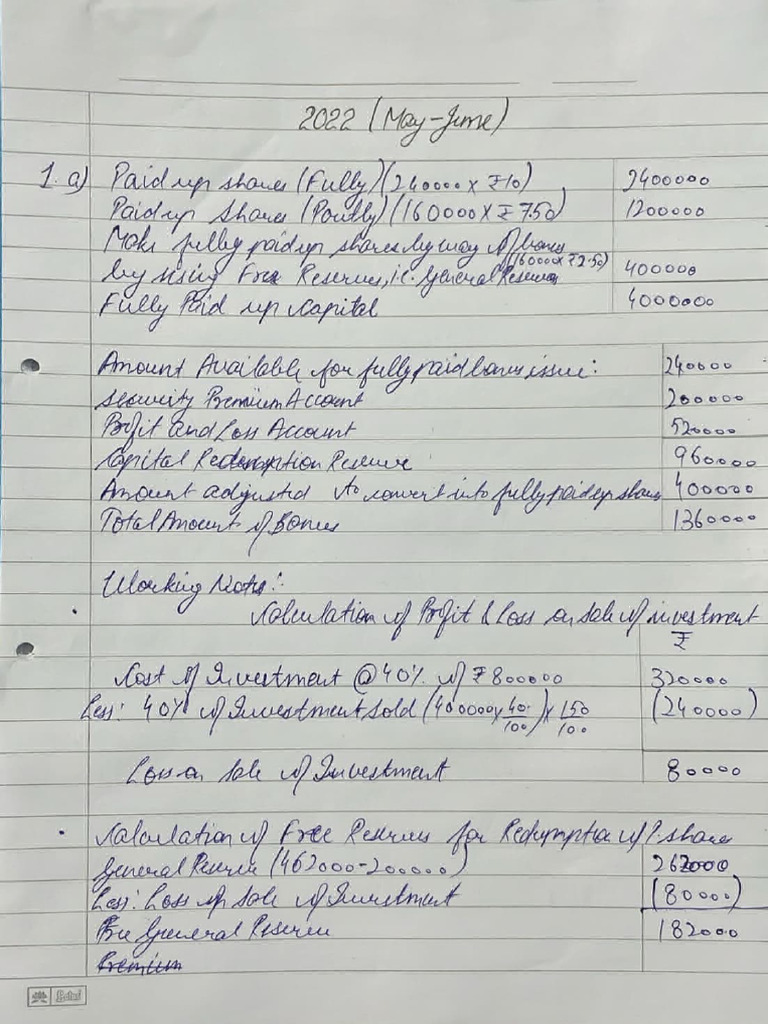 2022 (May-June)
1. a) Paid up shares (Fully) (240000 x ₹10) 2400000
Paid up Shares (Partly) (160000 x ₹ 7.50) 1200000
Make fully paid up shares by way of bonus
(160000 x ₹2.50)
by using Free Reserves, i.e. General Reserve 400000
Fully Paid up capital 4000000
Amount Available for fully paid bonus issue: 240000
Security Premium Account 200000
Profit and Loss Account 520000
Capital Redemption Reserve 960000
Amount adjusted to convert into fully paid up shares 400000
Total Amount of Bonus 1360000
Working Notes:
• Calculation of Profit & Loss on sale of investment
₹
Cost of Investment @ 40% of ₹ 800000 320000
Less: 40% of Investment sold (400000 x 40/100) x 150/100 (240000)
Loss on Sale of Investment 80000
• Calculation of Free Reserves for Redemption of P. shares
General Reserve (462000-200000) 262000
Less: Loss on sale of Investment (80000)
General Reserve 182000